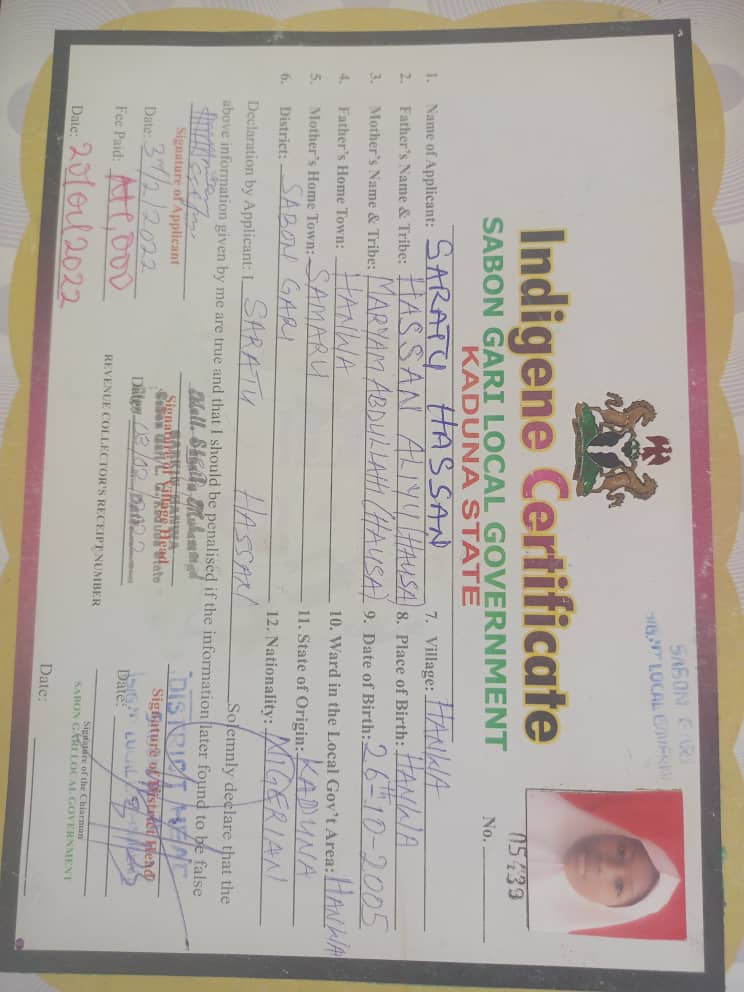 SABON GARI
SIGN LOCAL GOVERNM
Indigene Certificate
SABON GARI LOCAL GOVERNMENT
KADUNA STATE
No. 05439
1. Name of Applicant: SARATU HASSAN
2. Father's Name & Tribe: HASSAN ALIYU (HAUSA)
3. Mother's Name & Tribe: MARYAM ABDULLAHI (HAUSA)
4. Father's Home Town: HANWA
5. Mother's Home Town: SAMARU
6. District: SABON GARI
7. Village: HANWA
8. Place of Birth: HANWA
9. Date of Birth: 26th-10-2005
10. Ward in the Local Gov't Area: HANWA
11. State of Origin: KADUNA
12. Nationality: NIGERIAN
Declaration by Applicant: I SARATU HASSAN Solemnly declare that the
above information given by me are true and that I should be penalised if the information later found to be false
Signature of Applicant
Date: 3/2/2022
Fee Paid: ₦1,000
Date: 20/04/2022
Signature of Village Head
Date:
REVENUE COLLECTOR'S RECEIPT NUMBER
DISTRICT HEAD
Signature of District Head
Date:
Signature of the Chiarman
SABON GARI LOCAL GOVERNMENT
Date: